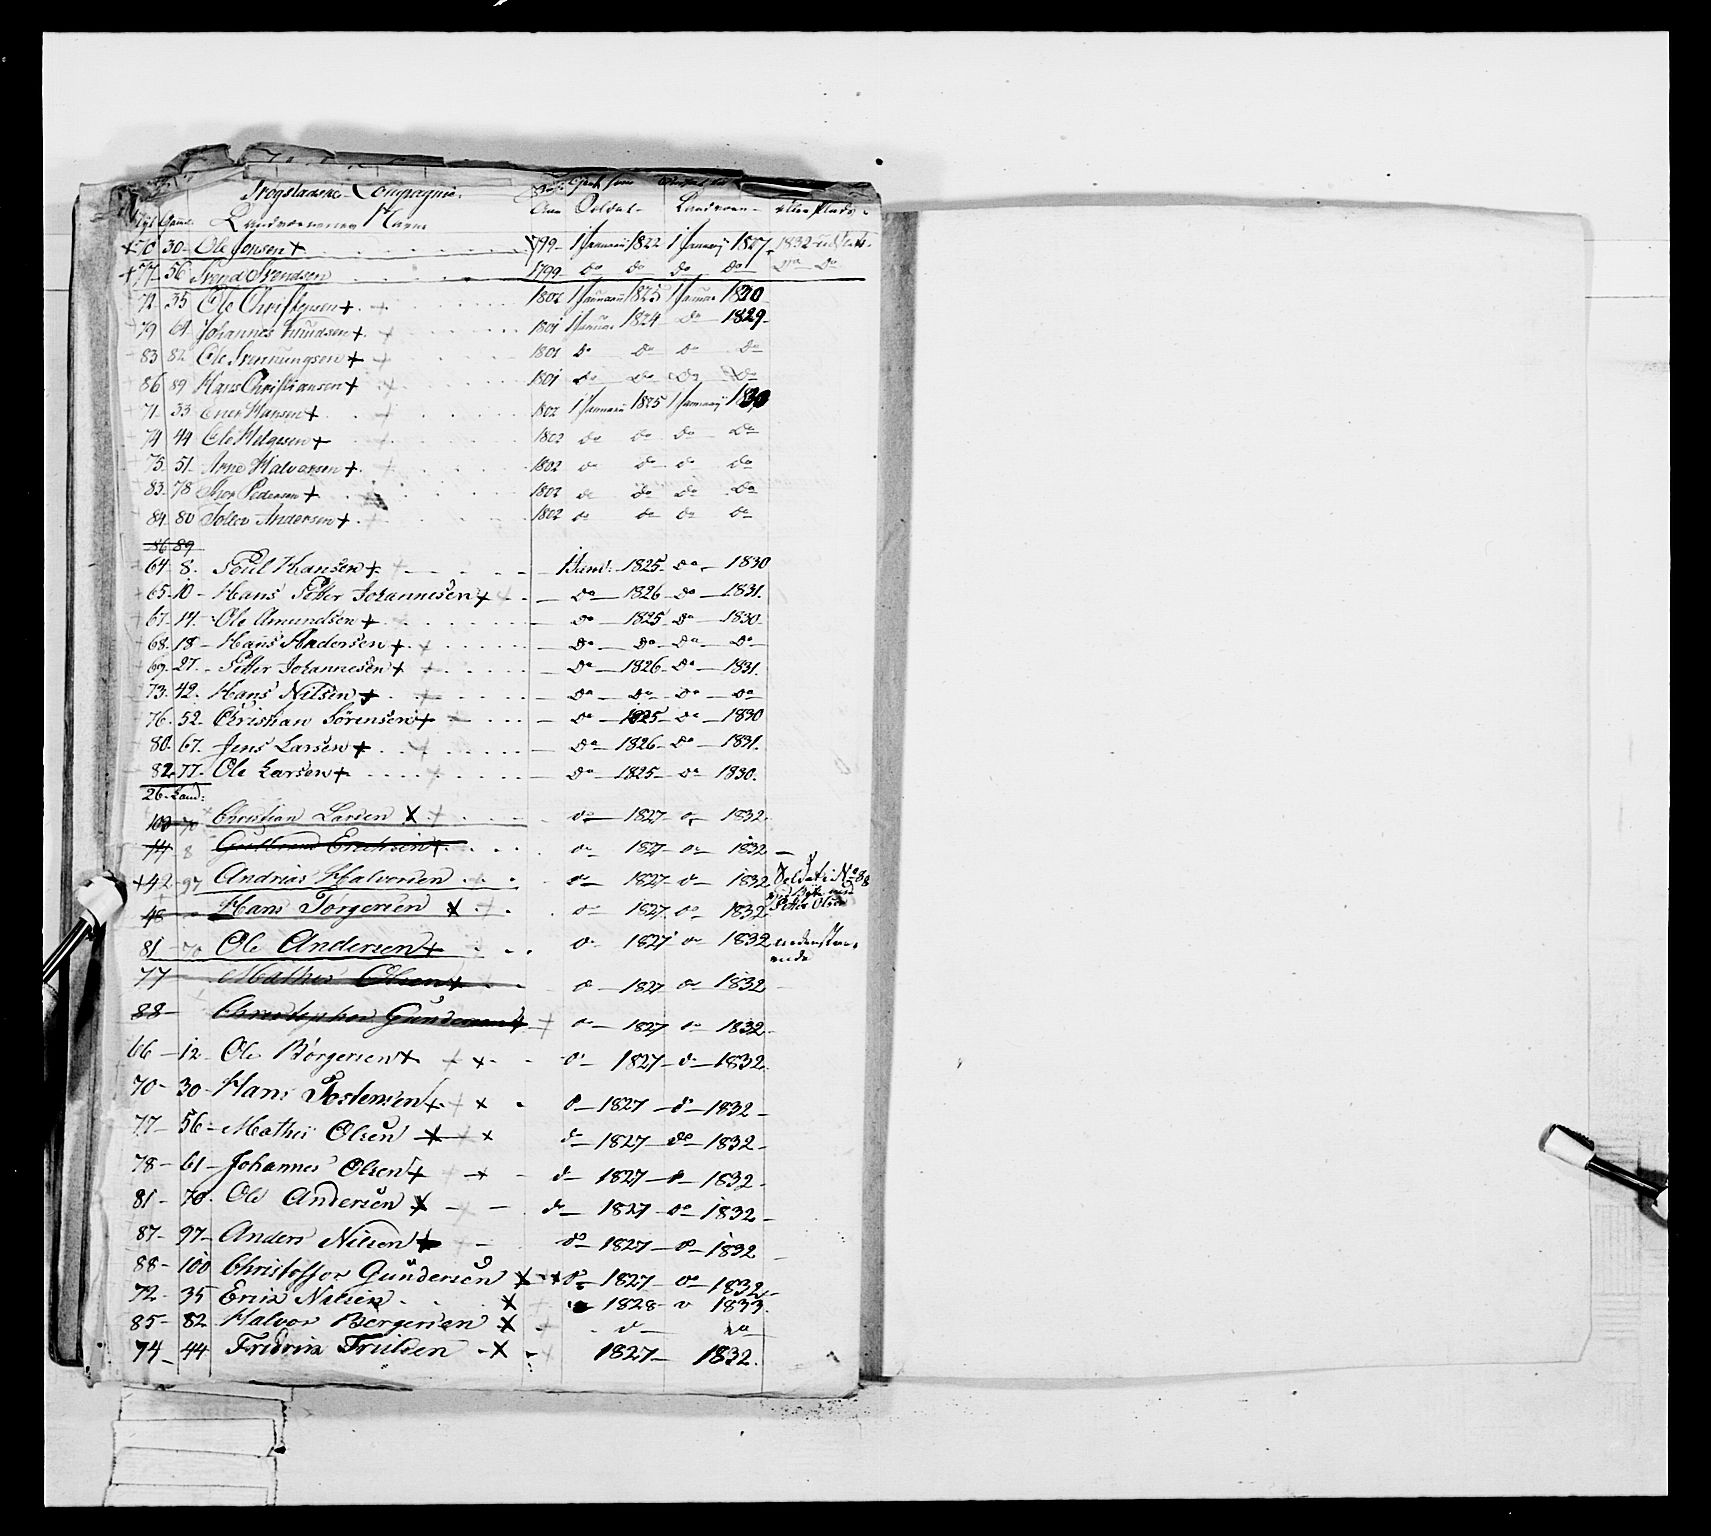 Trøgstadske Compagnie
Landværnernes Navne Aar Soldat Landværn
70 30 Ole Jonsen + 1799 1 Januarii 1822 1 Januarij 1827 1832
77 56 Svend Svendsen 1799 do do do do do do
72 35 Ole Christensen + 1802 1 Januarii 1825 1 Januar 1830
79 64 Johannes Knudsen + 1801 1 Januar 1824 do 1829
83 82 Ole + 1801 do do do do
86 89 Hans Christiansen + 1801 do do do do
71 33 Hansen + 1802 1 Januarii 1825 1 Januarij 1830
74 44 Ole Helgesen + 1802 do do do do
75 51 Arne Halvorsen + 1802 do do do do
83 78 Thor Pedersen + 1802 do do do do
84 80 Andersen + 1802 do do do do
86 89
64 8 Poul Hansen + 1 Janr: 1825 do 1830
65 10 Hans Petter Johannesen + do 1826 do 1831
67 14 Ole Amundsen + do 1825 do 1830
68 18 Hans Andersen + do do do do
69 27 Petter Johannesen + do 1826 do 1831
73 42 Hans Nilsen + do do do do
76 52 Christian Sørensen + do 1825 do 1830
80 67 Jens Larsen + do 1826 do 1831
82 77 Ole Larsen + do 1825 do 1830
26 Land:
100 70 Christian Larsen X do 1827 do 1832
74 8 Erichsen + do 1827 do 1832
+42 97 Andreas Halvorsen do 1827 do 1832 Soldat i No 88
48 Hans Torgersen X do 1827 do 1832 Petter Olsen
81 70 Ole Andersen + do 1827 do 1832
77 Mathis Olsen + do 1827 do 1832
88 Christopher Gundersen + do 1827 do 1832
66 12 Ole Børgersen + x do 1827 do 1832
70 30 Hans Tostensen + x do 1827 do 1832
77 56 Mathis Olsen + x do 1827 do 1832
78 61 Johannes Olsen + x do 1827 do 1832
81 70 Ole Andersen X do 1827 do 1832
87 97 Anders Nilsen + do 1827 do 1832
88 100 Christoffer Gundersen X do 1827 do 1832
72 35 Erik Nilsen X do 1828 do 1833
85 82 Halvor Borgersen X do do
74 44 Fridrik Trulsen X 1827 1832